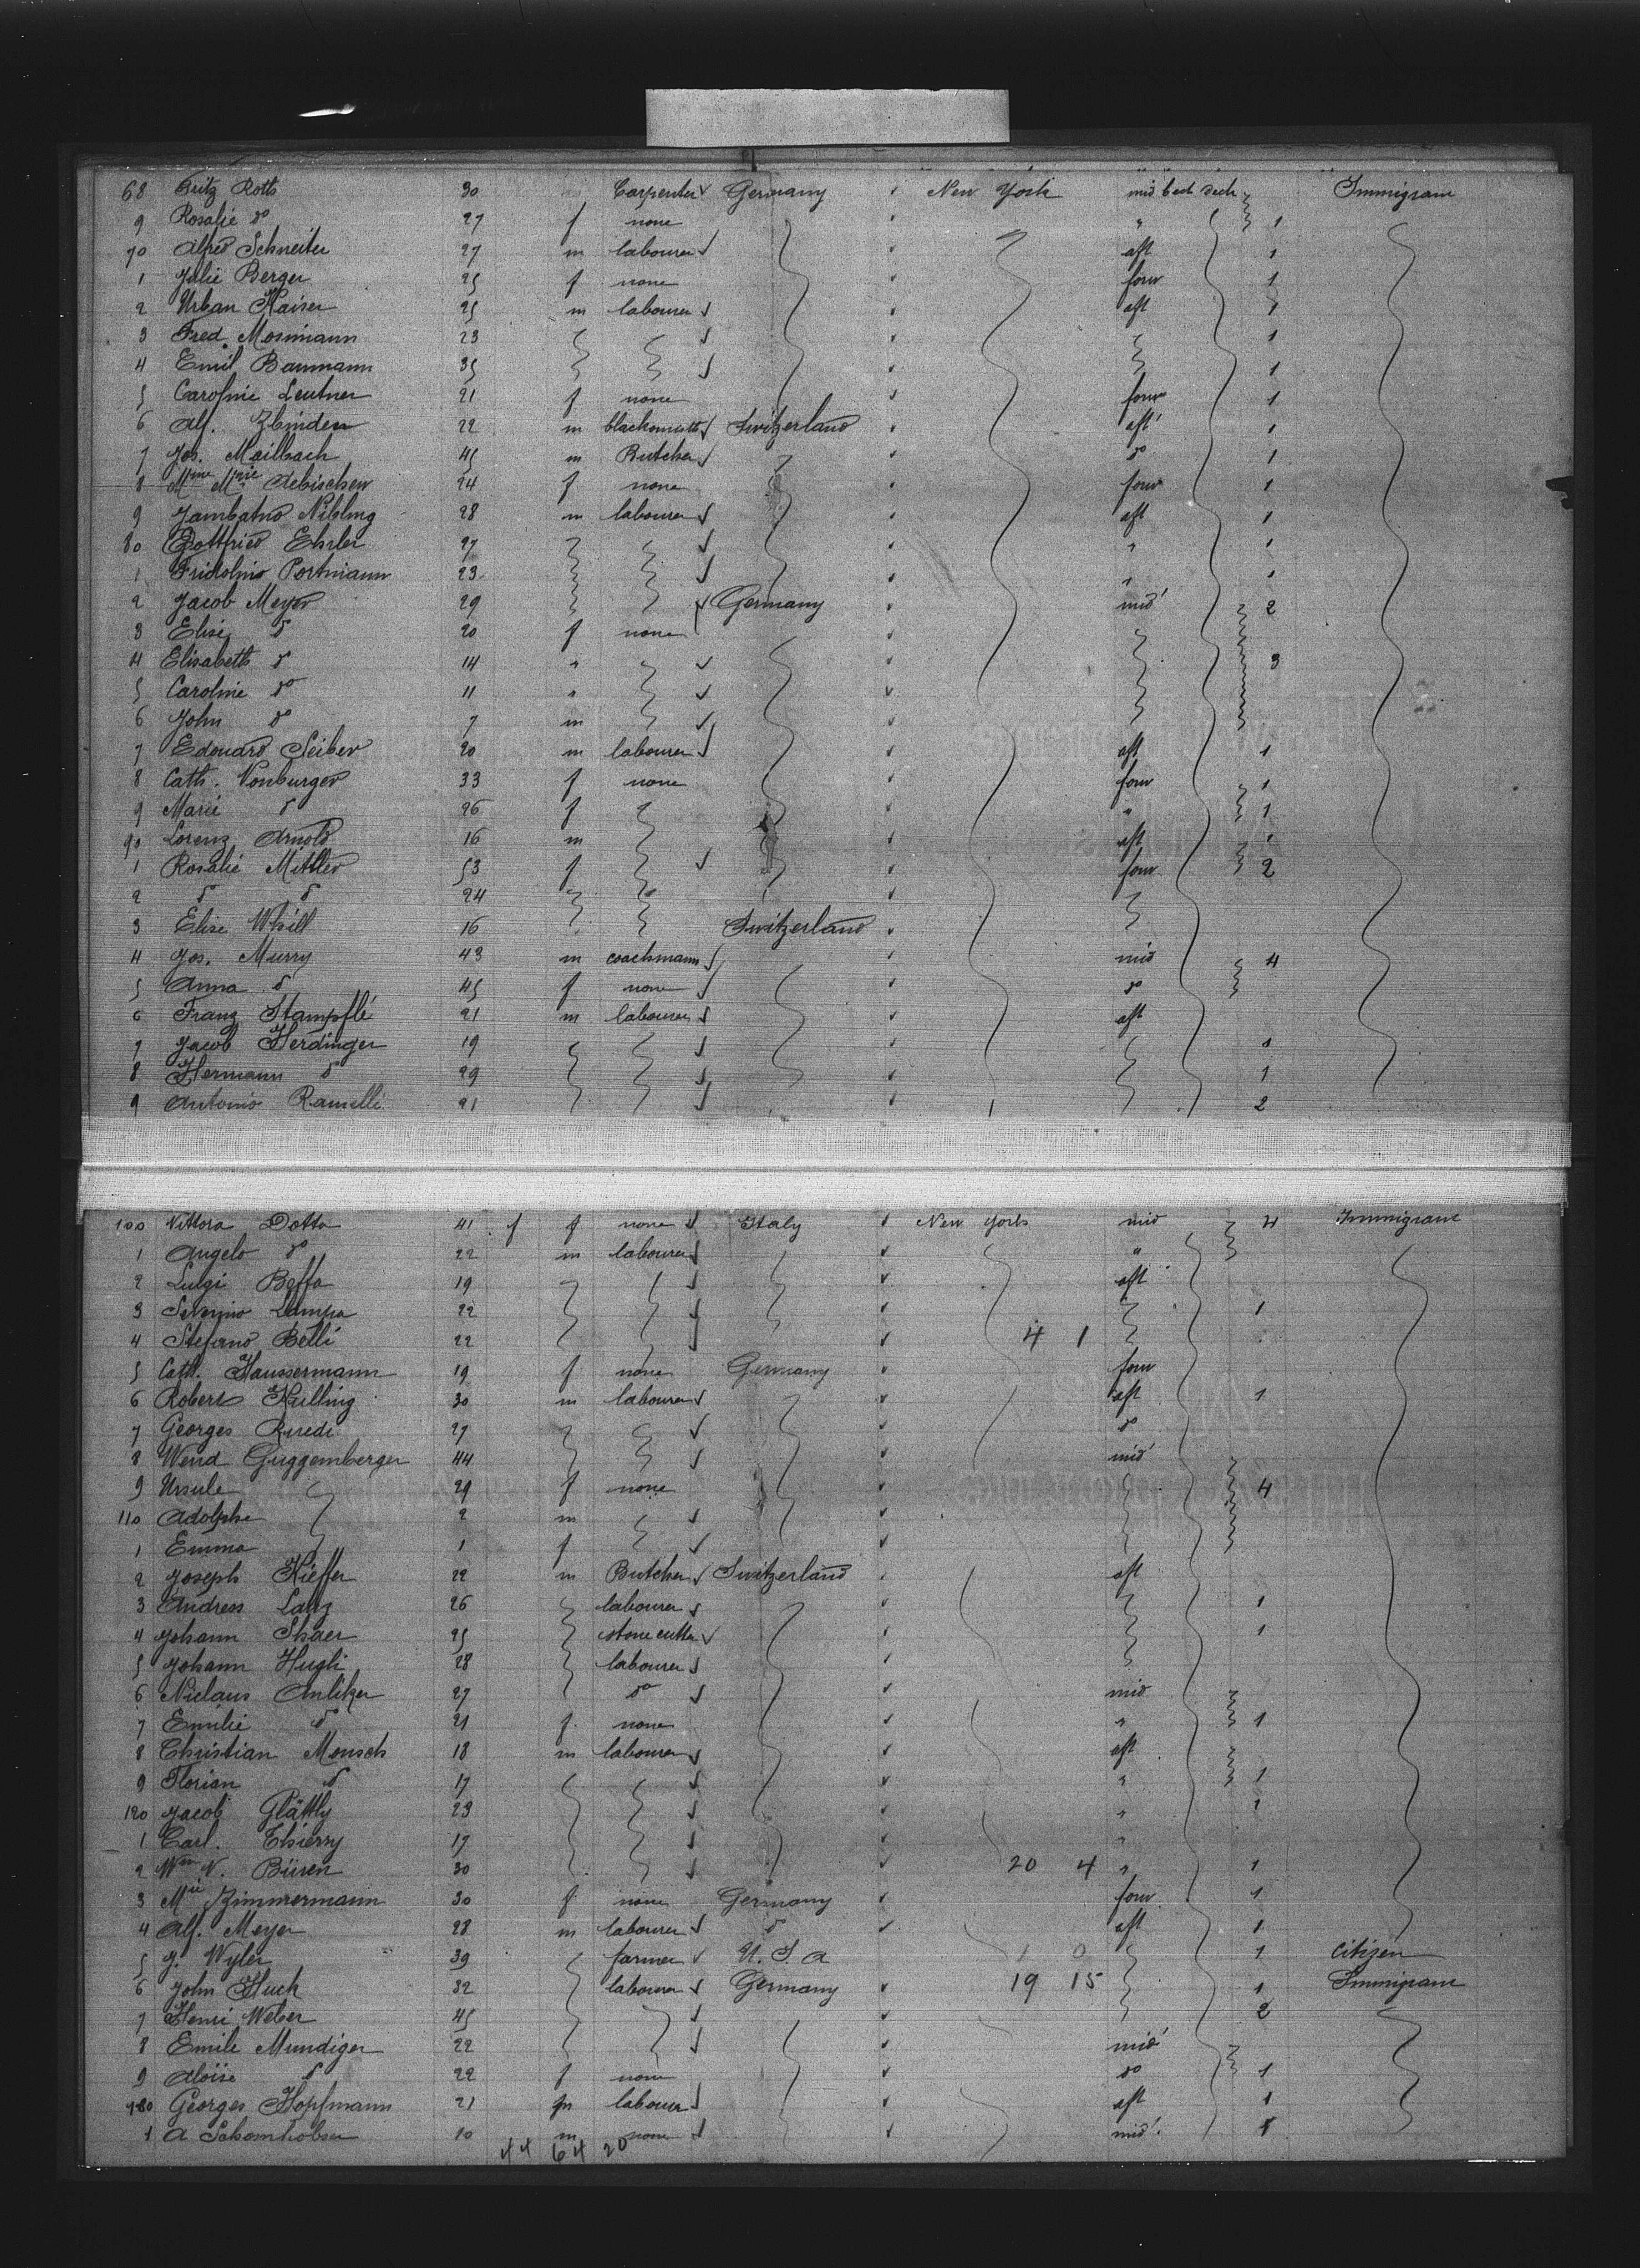 68 Fritz Roth 30 Carpenter Germany New York mid beet deck Immigrant
9 Rosalie do 27 f none " 1
70 Alfred Schneiter 27 m labourer aft 1
1 Julie Berger 25 f none forw 1
2 Urban Kaiser 25 m labourer aft 1
3 Fred. Mosimann 23 1
4 Emil Baumann 35 1
5 Caroline Leutner 21 f none forw 1
6 Alf. Zbinden 22 m blacksmith Switzerland aft 1
7 Jos. Mailbach 45 m Butcher do 1
8 Mme Mrie Aebischer 24 f none forw 1
9 Jambatno Nibling 28 m labourer aft 1
80 Gottfried Ehrler 27 " 1
1 Fridolino Portmann 23 " 1
2 Jacob Meyer 29 Germany mid 2
3 Elise do 20 f none
4 Elisabeth do 14 " 3
5 Caroline do 11 "
6 John do 7 m
7 Edouard Seiber 20 m labourer aft 1
8 Cath. Vonburger 33 f none forw 1
9 Marie do 26 f " 1
90 Lorenz Arnold 16 m aft 1
1 Rosalie Mittler 53 f forw 2
2 do do 24
3 Elise Whill 16 Switzerland
4 Jos. Murry 43 m coachmann mid 4
5 Anna do 45 f none do
6 Franz Stampflé 21 m labourer aft
7 Jacob Herdinger 19 1
8 Hermann do 29 1
9 Antonio Ramelli 21 2
100 Vittora Dotta 41 f f none Italy New York mid 4 Immigrant
1 Angelo do 22 m labourer "
2 Luigi Beffa 19 aft
3 Severino Lampa 22 1
4 Stefano Belli 22 4 1
5 Cath. Haussermann 19 f none Germany forw
6 Robert Hulling 30 m labourer aft 1
7 Georges Ruedi 27 do
8 Wend Guggemberger 44 mid
9 Ursule 29 f none 4
110 Adolphe 2 m
1 Emma 1 f
2 Joseph Kieffer 22 m Butcher Switzerland aft
3 Andress Lanz 26 labourer 1
4 Johann Shaer 25 stone cutter 1
5 Johann Hugli 28 labourer
6 Niclaus Anliker 27 do mid
7 Emilie do 21 f none " 1
8 Christian Monsch 18 m labourer aft
9 Florian do 17 " 1
120 Jacob Glättly 23 " 1
1 Carl. Thierry 17 "
2 Wm V. Büren 30 20 4 " 1
3 Mie Zimmermann 30 f none Germany forw 1
4 Alf. Meyer 28 m labourer do aft 1
5 J. Wyler 39 farmer U. S. A 1 0 1 Citizen
6 John Huck 32 labourer Germany 19 15 1 Immigrant
7 Henri Weber 45 2
8 Emile Mundiger 22 mid
9 Aloïse do 22 f none do 1
130 Georges Hopfmann 21 m labour aft 1
1 A Schomhobser 10 m none mid 1
44 64 20